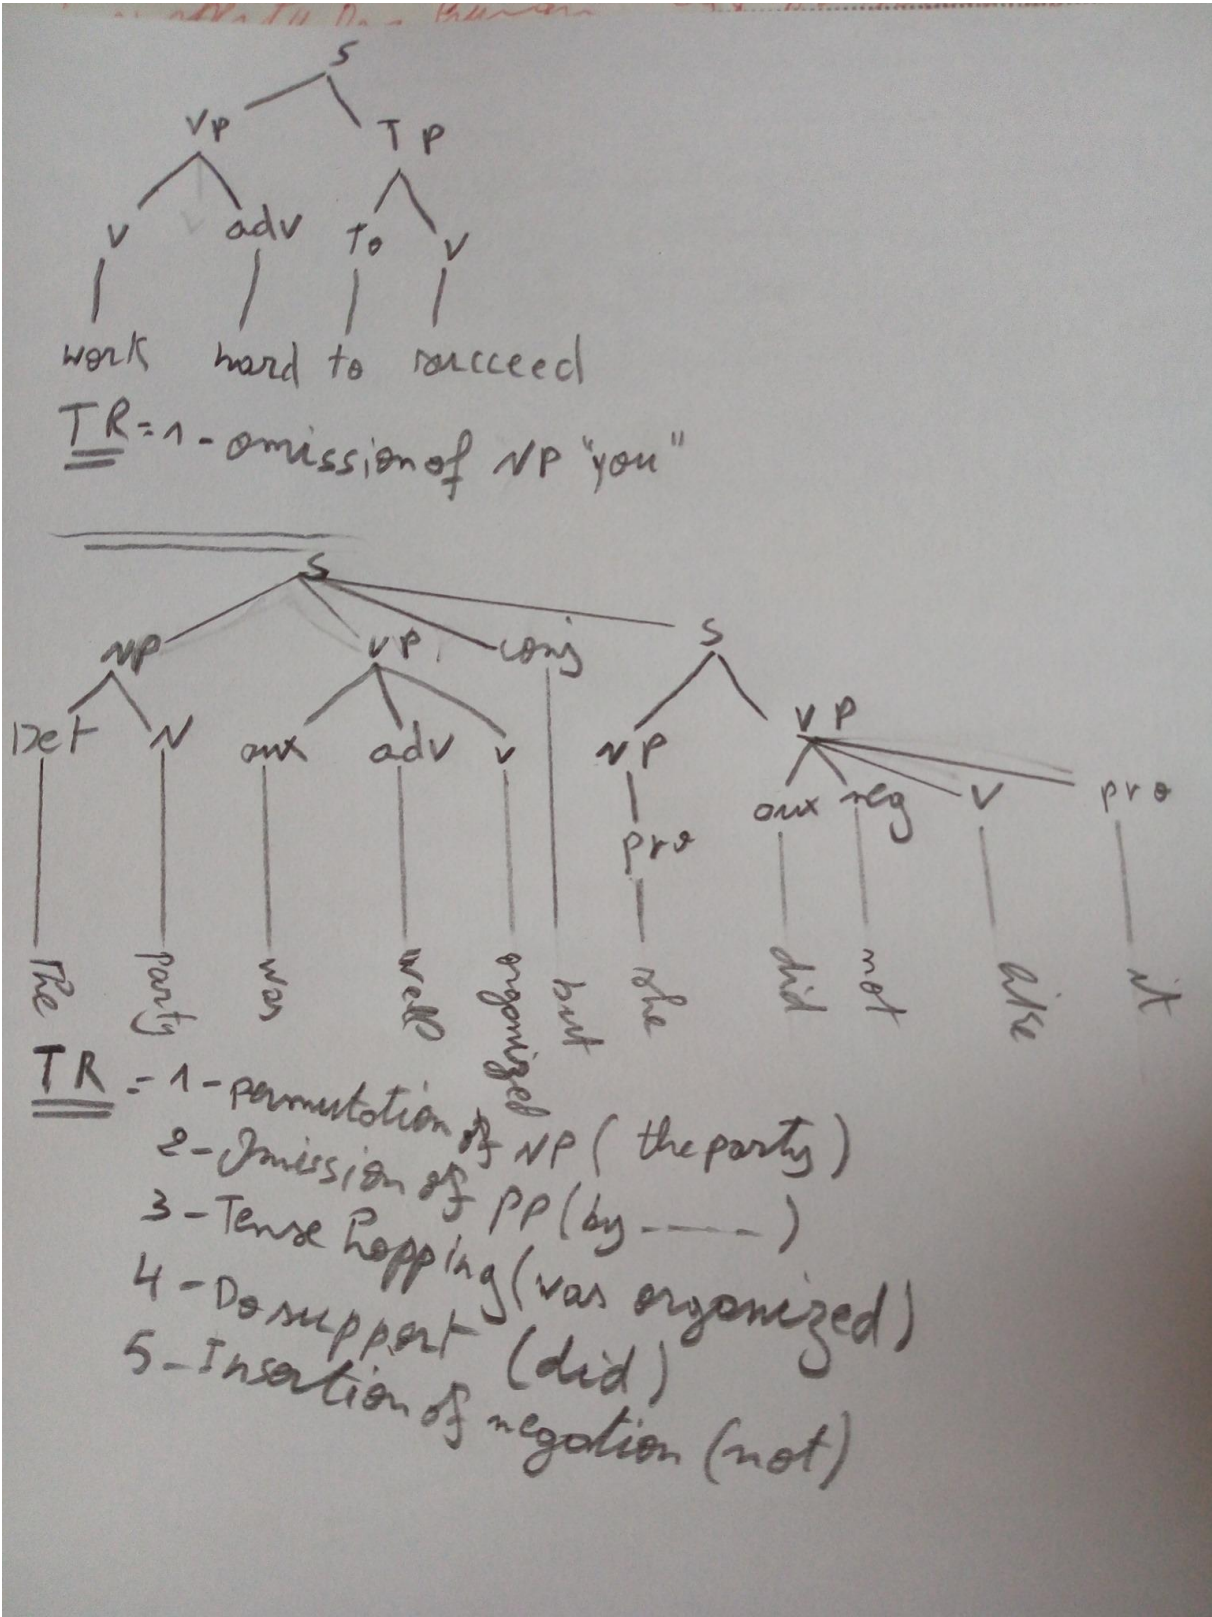 S
VP TP
V adv To V
work hard to succeed
TR = 1 - omission of NP "you"
S
NP VP conj S
Det N aux adv V NP VP
pro aux neg V pro
The party was well organized but she did not like it
TR = 1 - permutation of NP ( the party )
2 - Omission of PP ( by ----- )
3 - Tense hopping ( was organized )
4 - Do support ( did )
5 - Insertion of negation ( not )